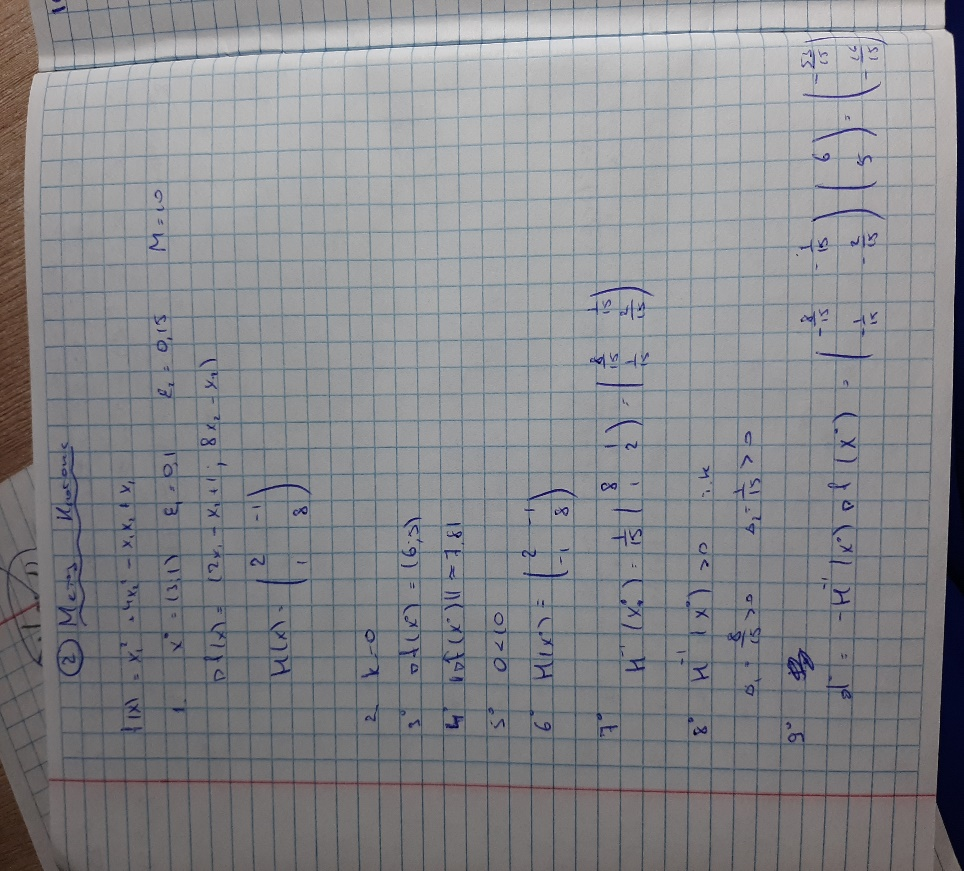 ② Метод Ньютона
f(x) = x₁² + 4x₂² - x₁x₂ + x₁
1. x° = (3;1) ε₁ = 0,1 ε₂ = 0,15 M = 10
∇f(x) = (2x₁ - x₂ + 1; 8x₂ - x₁)
H(x) = (2 -1
1 8)
2 k = 0
3° ∇f(x°) = (6;5)
4° ||∇f(x°)|| ≈ 7,81
5° 0 < 10
6° H(x°) = (2 -1
-1 8)
7° H⁻¹(x°) = 1/15 (8 1
1 2) = (8/15 1/15
1/15 2/15)
8° H⁻¹(x°) > 0 т.к
Δ₁ = 8/15 > 0 Δ₂ = 1/15 > 0
9°
d° = -H⁻¹(x°)∇f(x°) = (-8/15 -1/15
-1/15 -2/15) (6
5) = (-53/15
-16/15)